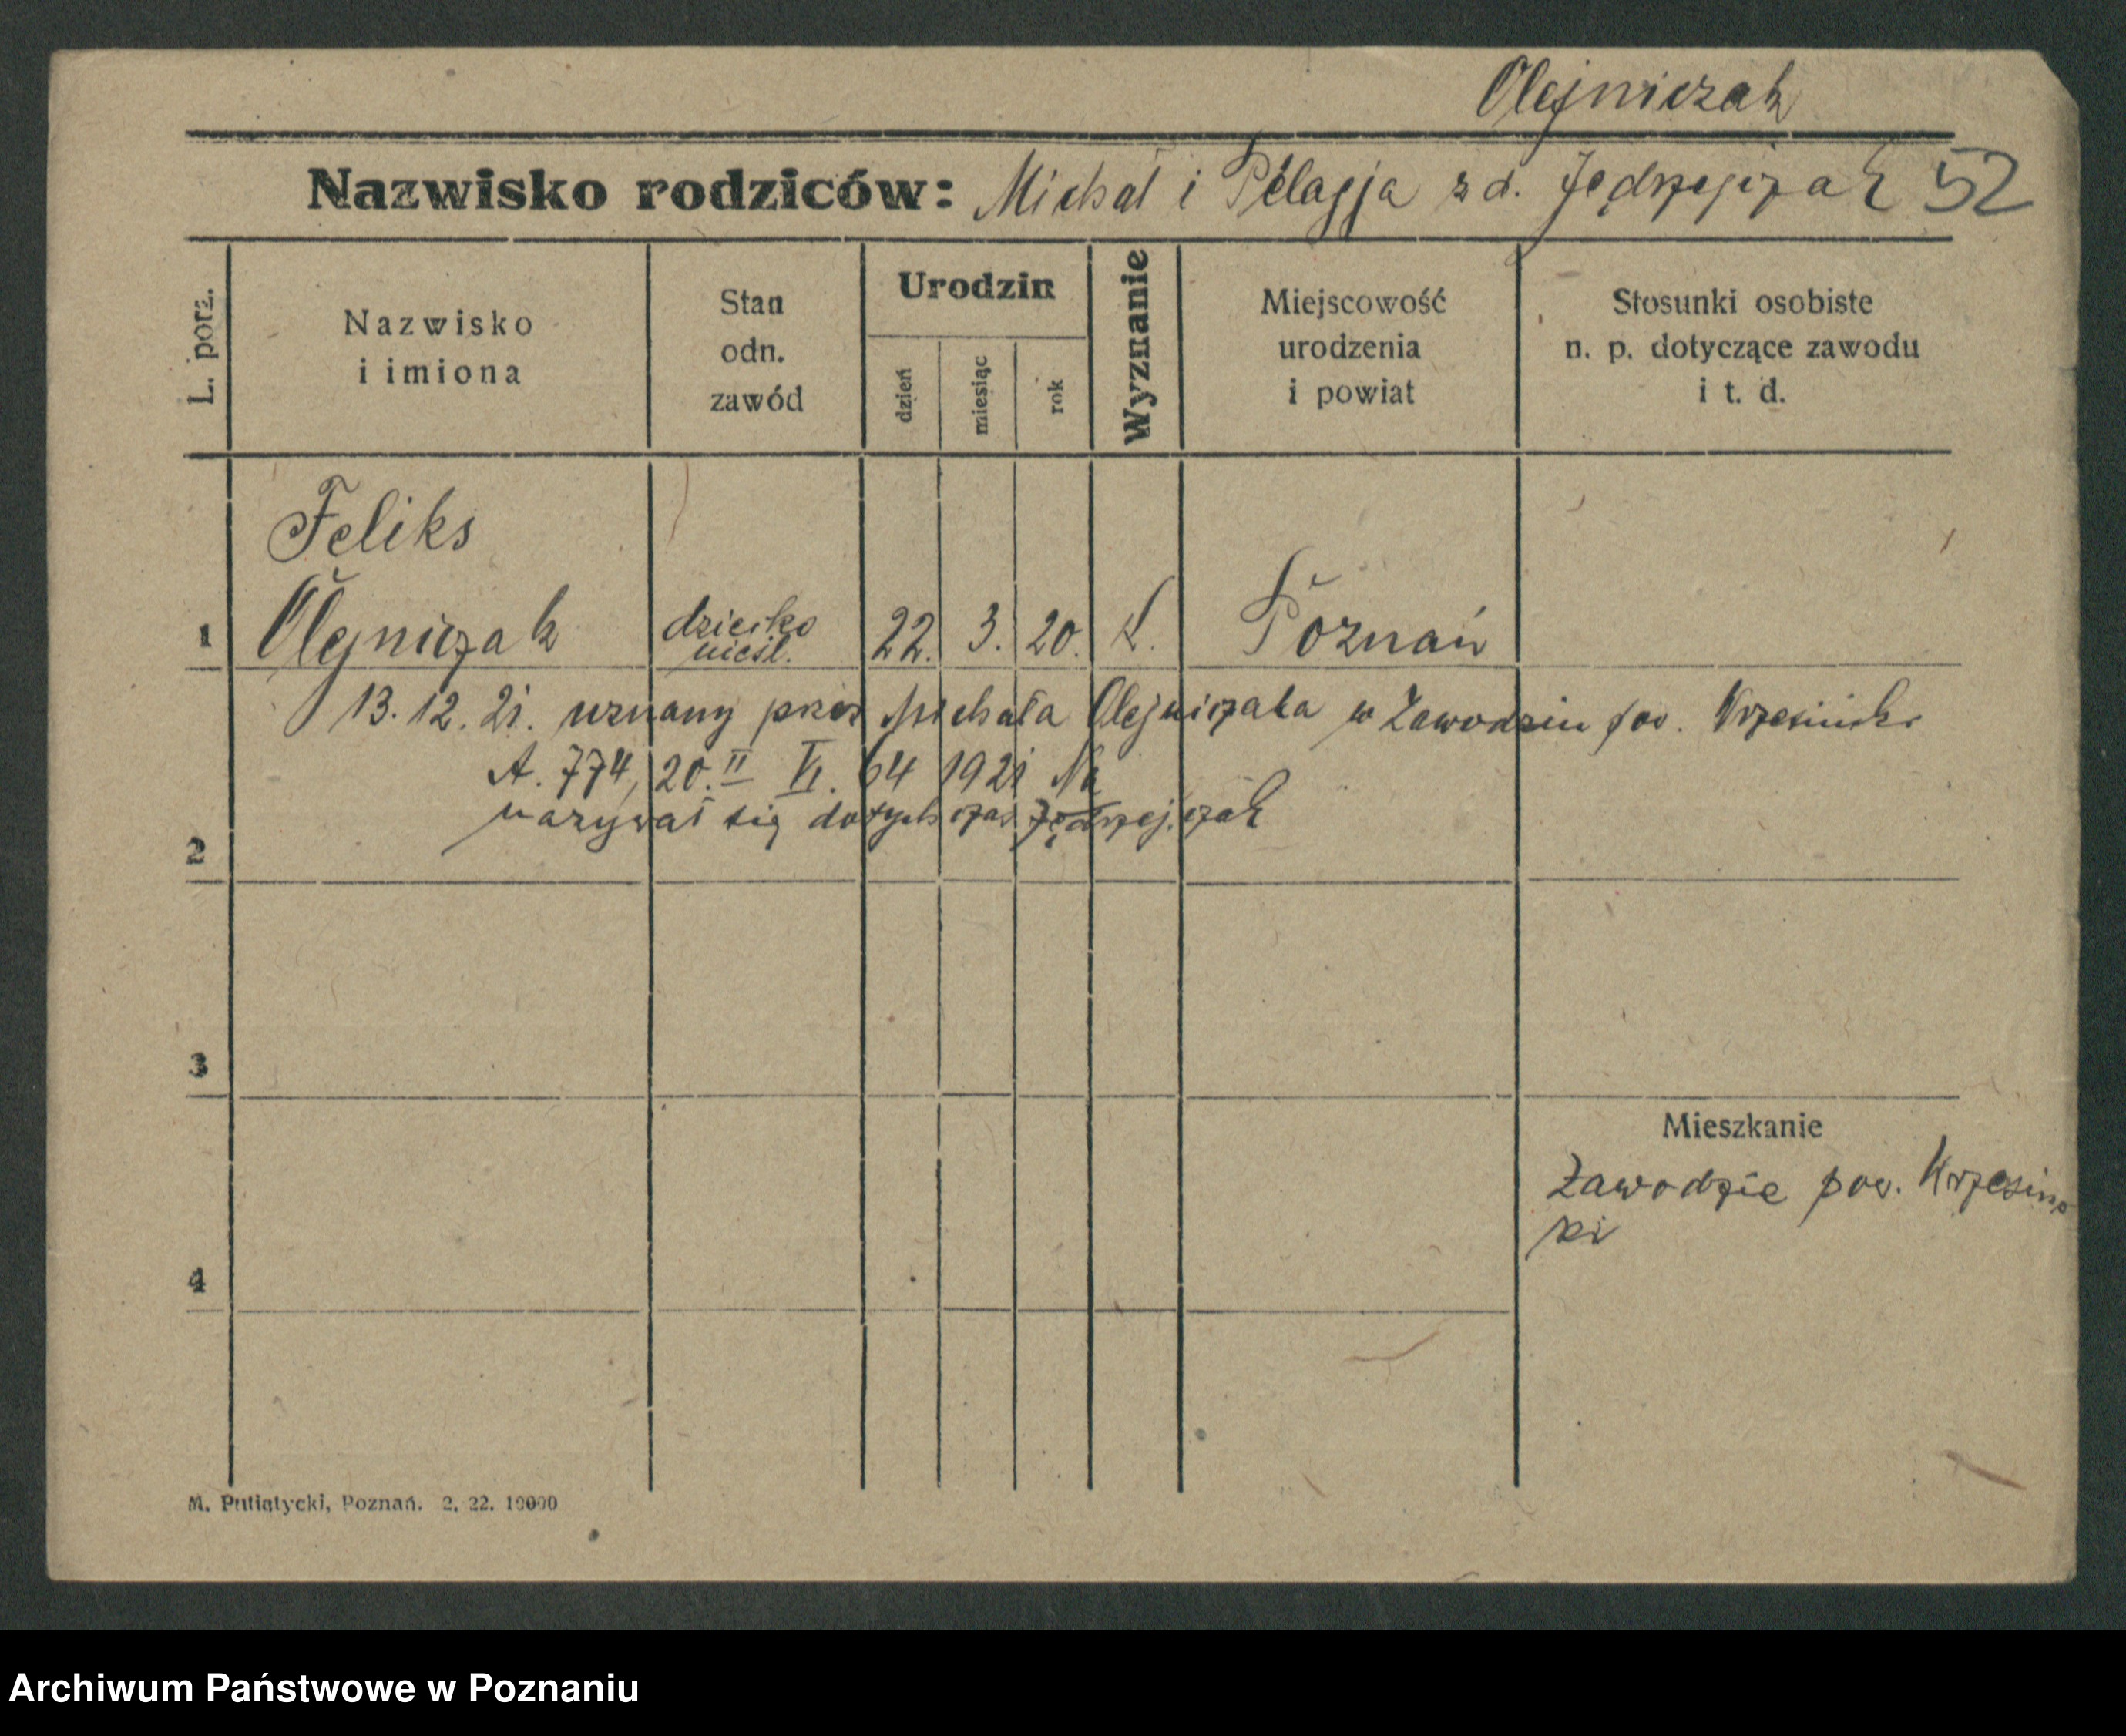 Olejniczak
Nazwisko rodziców: Michał i Pelagja z d. Jędrzejczak 52
L. porz.
Nazwisko
i imiona
Stan
odn.
zawód
Urodzin
dzień
miesiąc
rok
Wyznanie
Miejscowość
urodzenia
i powiat
Stosunki osobiste
n. p. dotyczące zawodu
i t. d.
Feliks
1 Olejniczak dziecko 22. 3. 20. k. Poznań
nieśl.
13. 12. 21. uznany przez Michała Olejniczaka w Zawodziu pow. Wrzesiński
A. 774, 20. II VI. 64 1921
nazywał się dotychczas Jędrzejczak
2
3
Mieszkanie
Zawodzie pow. Wrzesińs
ki
4
M. Putiatycki, Poznań. 2. 22. 10000
Archiwum Państwowe w Poznaniu